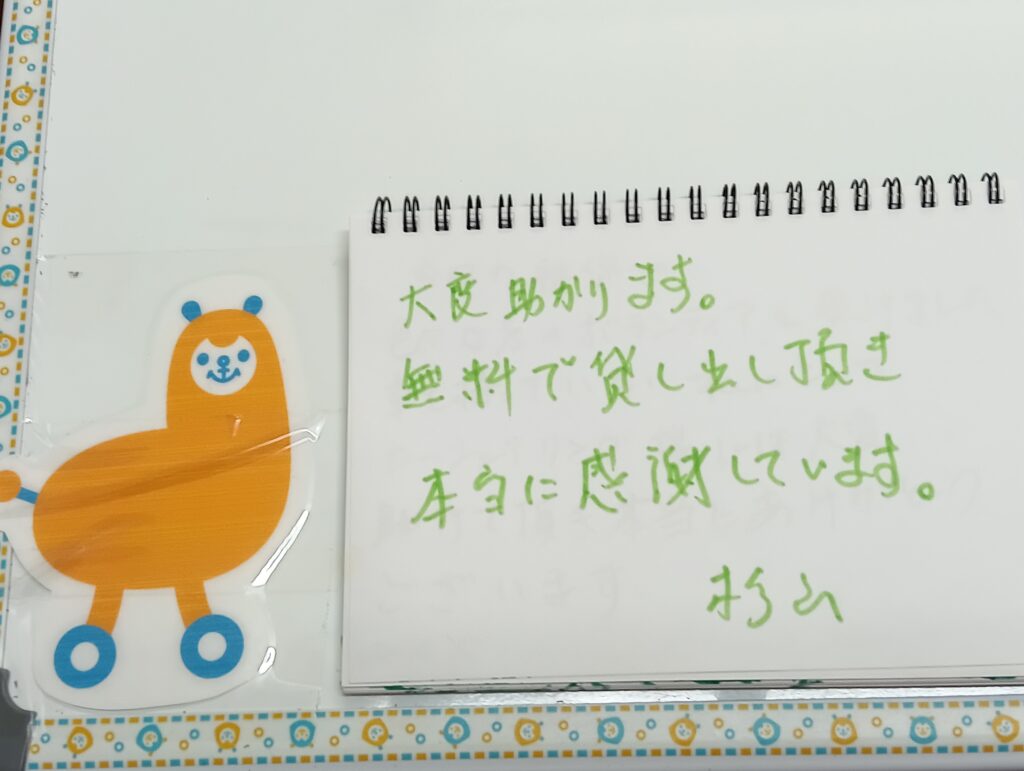 大変助かります。
無料で貸し出し頂き
本当に感謝しています。
杉山